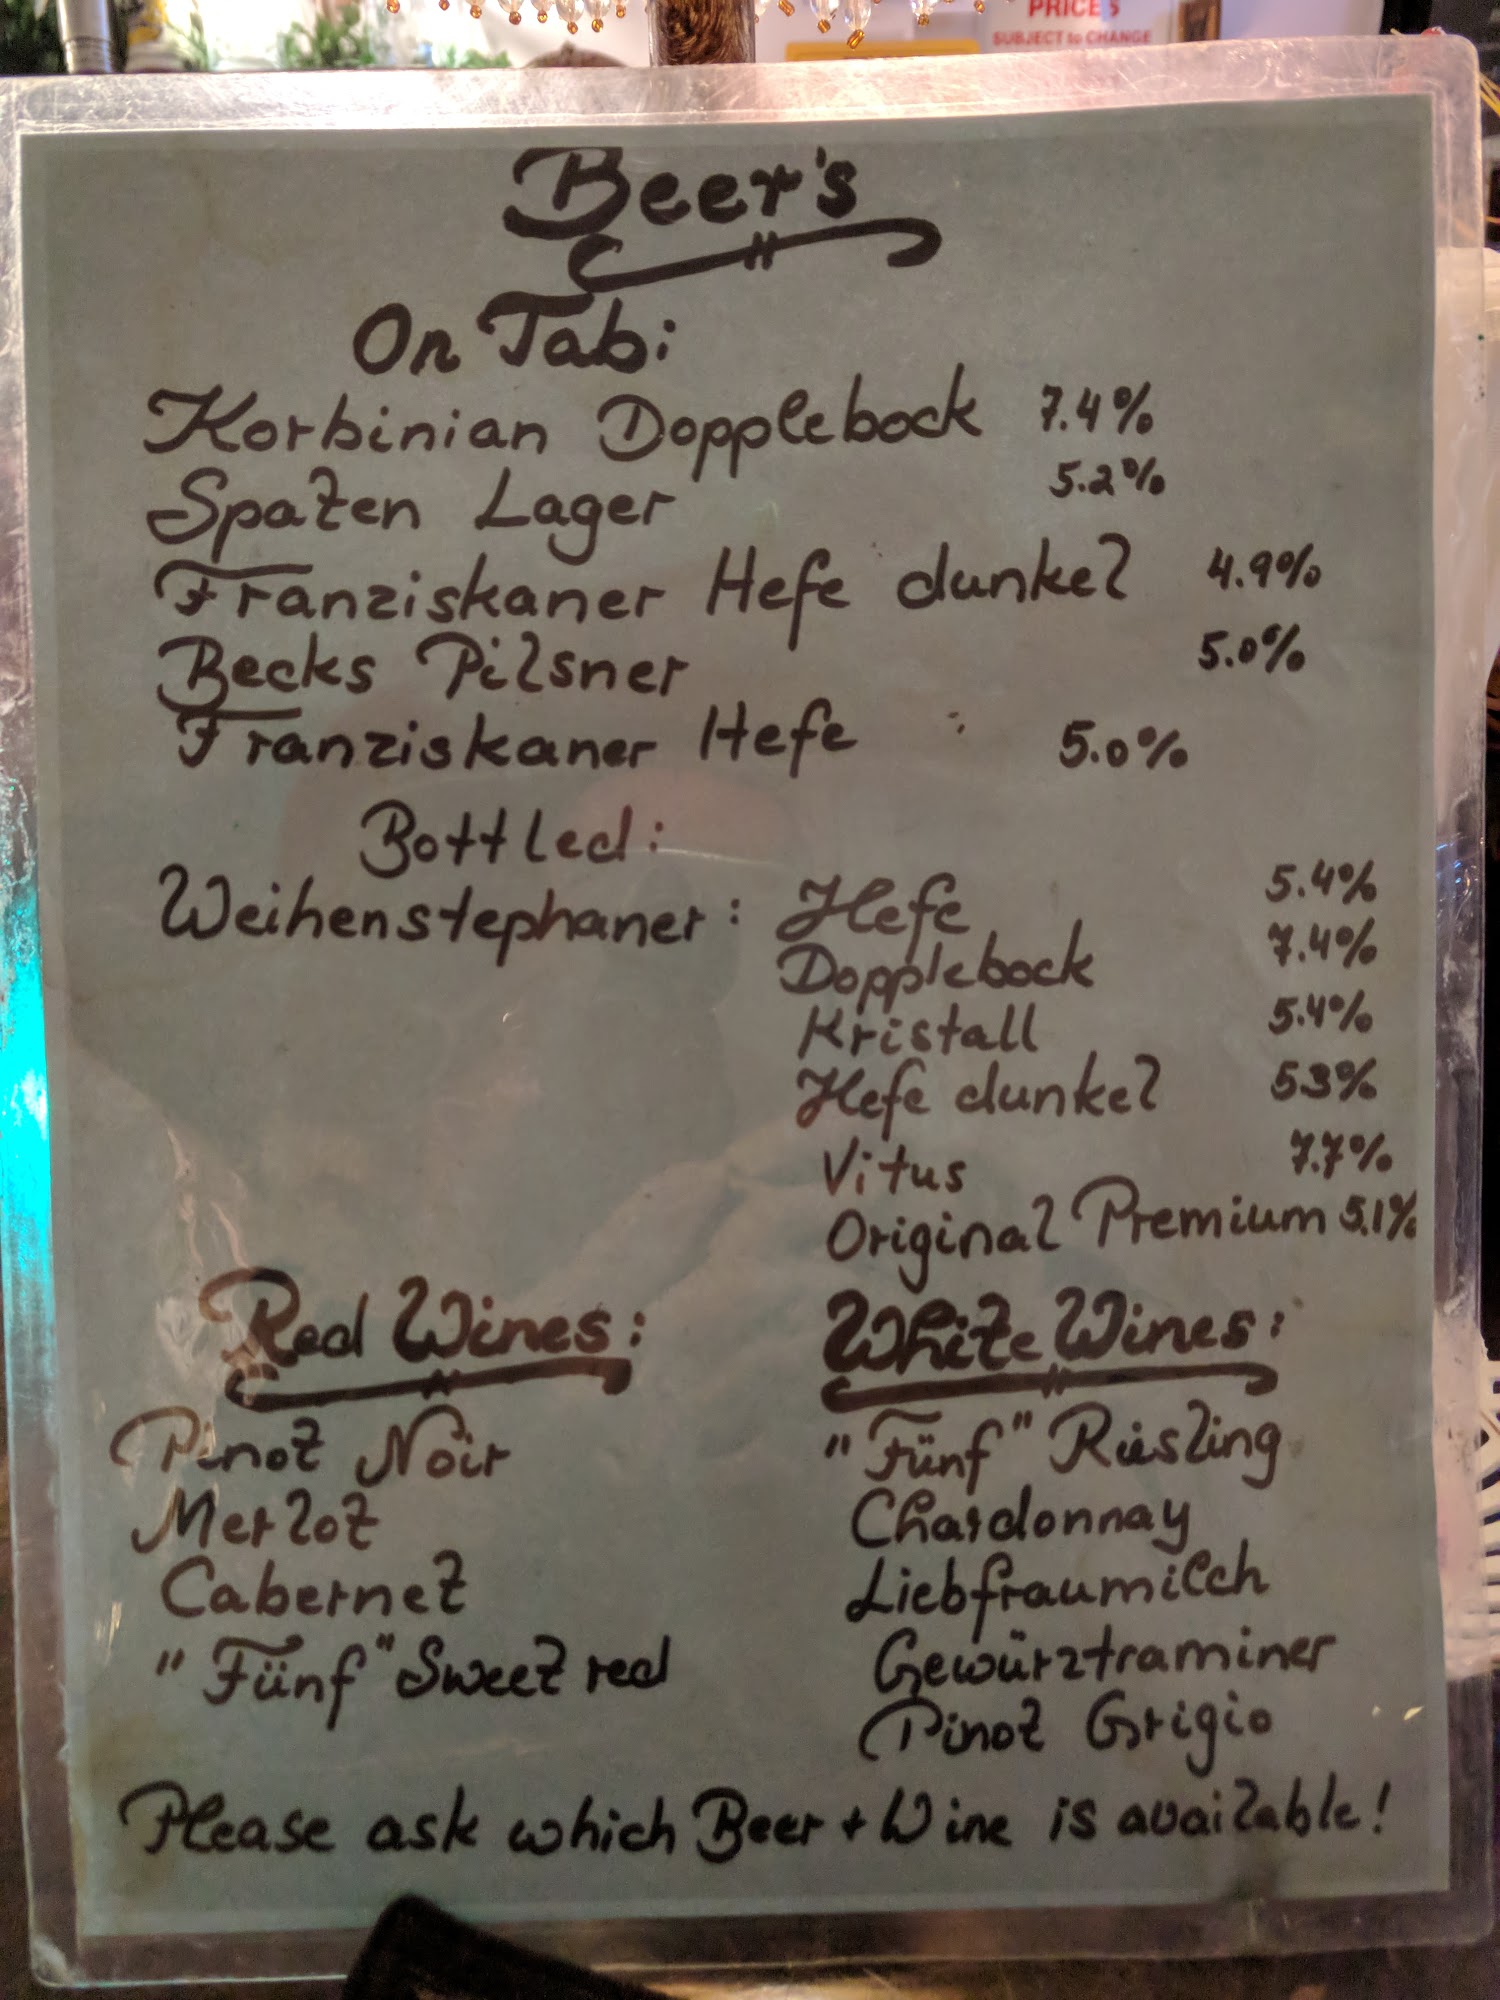 PRICES
SUBJECT to CHANGE
Beer's
On Tab:
Korbinian Dopplebock 7.4%
Spaten Lager 5.2%
Franziskaner Hefe dunkel 4.9%
Becks Pilsner 5.0%
Franziskaner Hefe 5.0%
Bottled:
Weihenstephaner: Hefe 5.4%
Dopplebock 7.4%
Kristall 5.4%
Hefe dunkel 53%
Vitus 7.7%
Original Premium 5.1%
Red Wines:
Pinot Noir
Merlot
Cabernet
"Fünf" Sweet red
White Wines:
"Fünf" Riesling
Chardonnay
Liebfraumilch
Gewürztraminer
Pinot Grigio
Please ask which Beer + Wine is available!